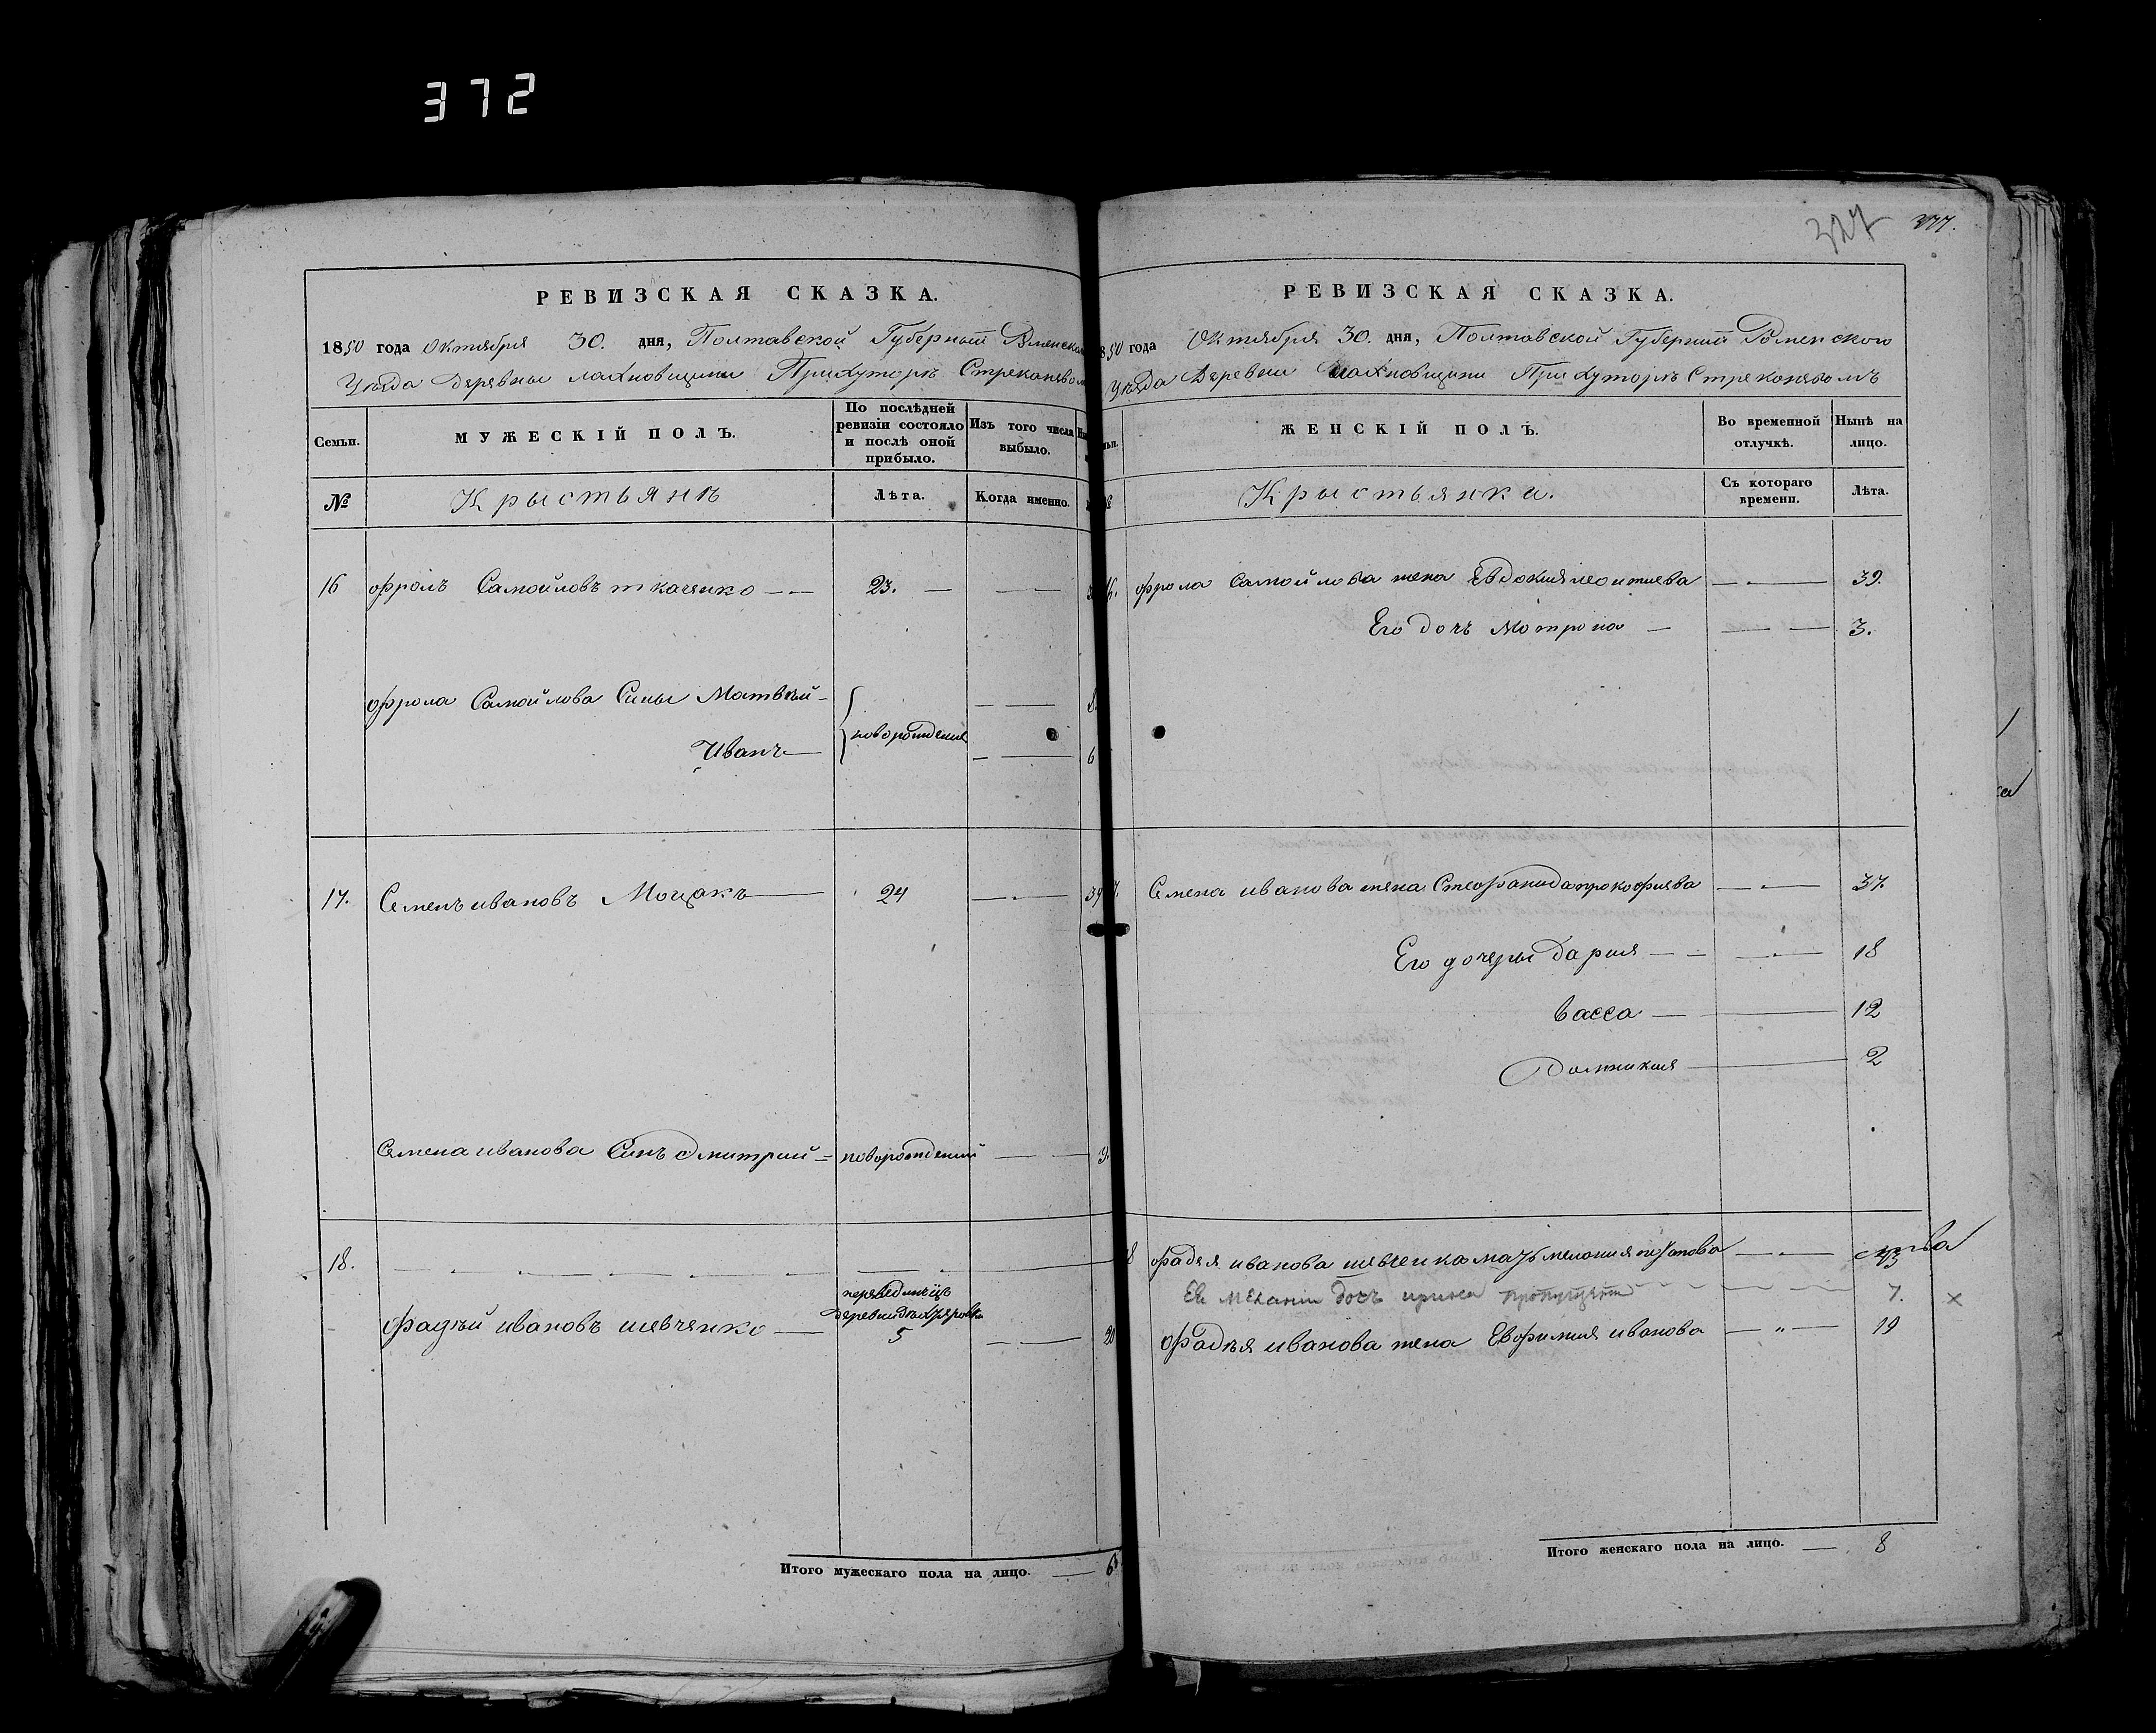 372
РЕВИЗСКАЯ СКАЗКА.
1850 года Октября 30. дня, Полтавской Губернии
Уезда деревни лахновщини При хуторе
Семьи.
МУЖЕСКІЙ ПОЛЪ.
По послѣдней ревизіи состояло и послѣ оной прибыло.
Изъ того числа выбыло.
№
Крыстьянъ
Лѣта.
Когда именно.
16 фролъ Самойловъ ткаченко 23.
фрола Самойлова Сины Матвѣй 8.
новорожденне
Иванъ 6
17. Семенъ ивановъ Моцакъ 24
Семена иванова Синъ дмитрий новорожденний
18.
переведенъ изъ
деревни
фадѣй ивановъ шевченко 5
Итого мужескаго пола на лицо. 6
327 377.
РЕВИЗСКАЯ СКАЗКА.
1850 года Октября 30. дня, Полтавской Губернии Роменского
Уезда Деревни лахновщини При хуторе Стреканевомъ
ЖЕНСКІЙ ПОЛЪ.
Во временной отлучкѣ.
Нынѣ на лицо.
№
Крыстьянки.
Съ котораго времени.
Лѣта.
16. фрола Самойлова жена Евдокия леонтиева 39.
Его дочъ Мотрона 3.
17. Семена иванова жена Стефанида прокофиева 37.
Его дочеры дария 18
васса 12
Домникия 2
18 фадея иванова шевченка мать мелания 43
Ее мелании дочъ ирина 7. ×
фадѣя иванова жена Евфимия иванова 19
Итого женскаго пола на лицо. 8